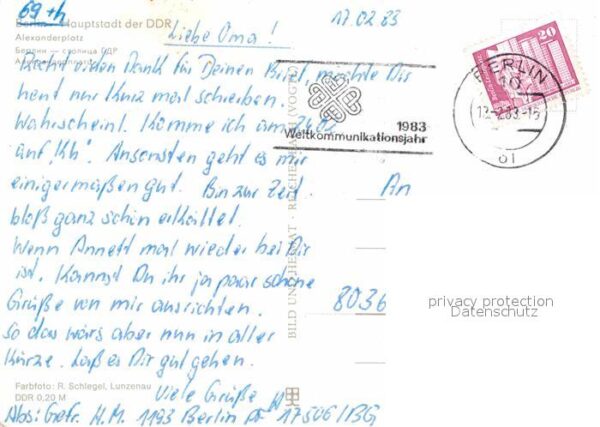 69+h
Berlin - Hauptstadt der DDR
Alexanderplatz
Берлин — столица ГДР
17.02.83
Liebe Oma!
Recht vielen Dank für Deinen Brief, möchte Dir
heut nur kurz mal schreiben.
Wahrscheinl. komme ich am 26.02
auf „Kh". Ansonsten geht es mir
einigermaßen gut. Bin zur Zeit
bloß ganz schön erkältet.
Wenn Annett mal wieder bei Dir
ist. Kannst Du ihr ja paar schöne
Grüße von mir ausrichten.
so das wärs aber nun in aller
Kürze. Laß es Dir gut gehen.
Viele Grüße
Abs: Gefr. H.M. 1193 Berlin PF 17506/BG
Farbfoto: R. Schlegel, Lunzenau
DDR 0,20 M
BILD UND HEIMAT · REICHENBACH (VOGTL
1983
Weltkommunikationsjahr
20
BERLIN
10
17-2.83-15
01
An
8036
privacy protection
Datenschutz